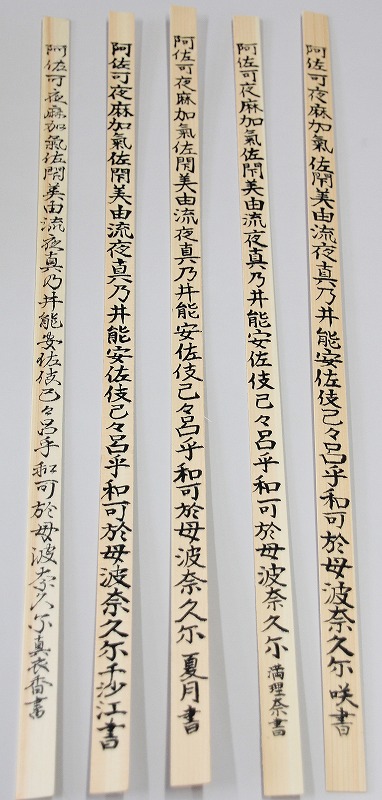 阿佐可夜麻加氣佐閇美由流夜真乃井能安佐伎己々呂乎和可於母波奈久尓 咲書
阿佐可夜麻加氣佐閇美由流夜真乃井能安佐伎己々呂乎和可於母波奈久尓 満理奈書
阿佐可夜麻加氣佐閇美由流夜真乃井能安佐伎己々呂乎和可於母波奈久尓 夏月書
阿佐可夜麻加氣佐閇美由流夜真乃井能安佐伎己々呂乎和可於母波奈久尓千沙江書
阿佐可夜麻加氣佐閇美由流夜真乃井能安佐伎己々呂乎和可於母波奈久尓真衣香書